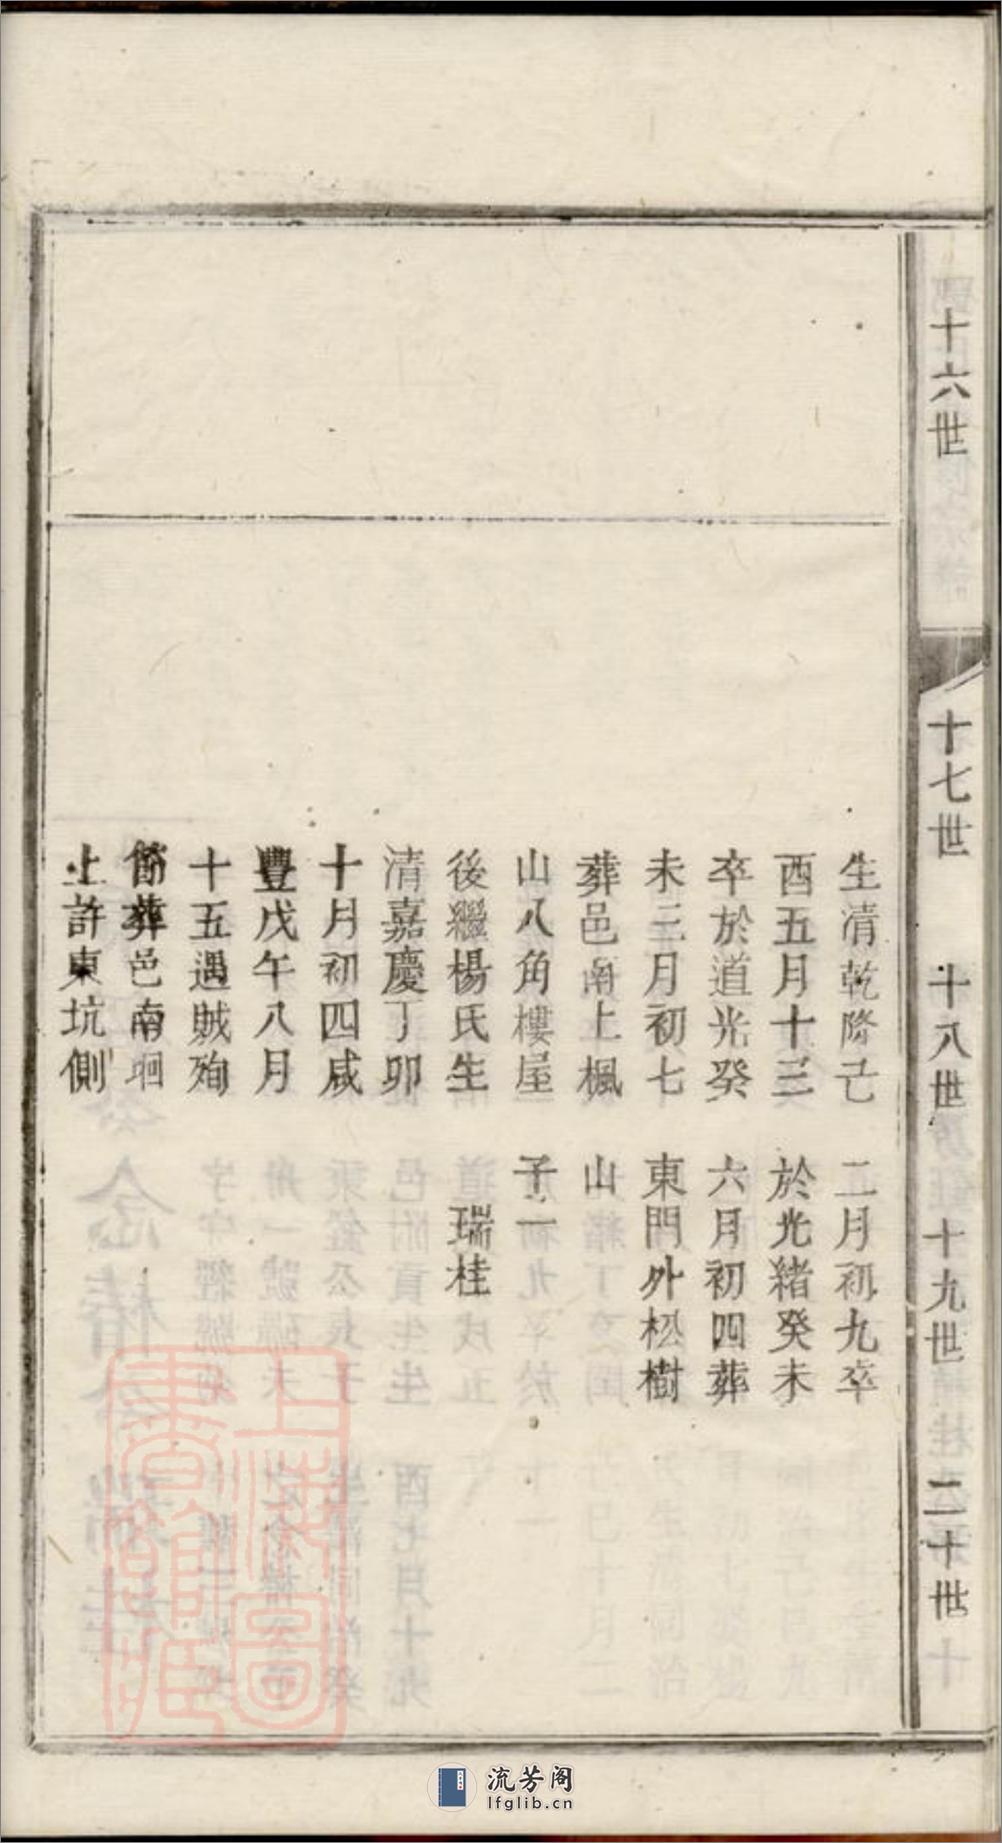 十六世
十七世
十八世
十九世
二十世
生清乾隆己
酉五月十三
卒於道光癸
未三月初七
葬邑南上楓
山八角樓屋
後繼楊氏生
清嘉慶丁卯
十月初四咸
豐戊午八月
十五遇賊殉
節葬邑南垇
上許東坑側
二月初九卒
於光緒癸未
六月初四葬
東門外松樹
山
子一
瑞桂
上海圖書館藏
流芳阁
lfglib.cn